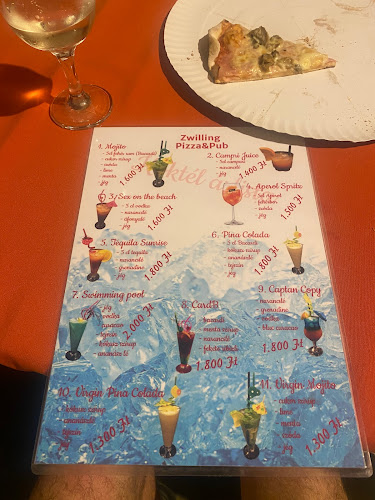 Zwilling
Pizza&Pub
1. Mojito
- 5cl fehér rum (Bacardi)
- cukor szirup
- szóda
- lime
- menta
- jég
1.600 Ft
2. Campi Juice
- 5cl campari
- narancslé
- jég
1.400 Ft
3. Sex on the beach
- 5 cl vodka
- narancslé
- áfonyalé
- jég
1.800 Ft
4. Aperol Spritz
- 5cl Aperol
- szóda
- jég
1.500 Ft
5. Tequila Sunrise
- 5 cl tequila
- narancslé
- grenadine
- jég
1.800 Ft
6. Pina Colada
- 5 cl Bacardi
- kókusz szirup
- ananászlé
- tejszín
- jég
1.800 Ft
7. Swimming pool
- jég
- vodka
- tejszín
- kókusz szirup
- ananász lé
2.000 Ft
8.
- menta szirup
- narancslé
- jég
1.800 Ft
9. Captan Copy
- narancslé
- grenadine
- vodka
- blue caracao
1.800 Ft
10. Virgin Pina Colada
- kókusz szirup
- ananászlé
- tejszín
- jég
1.300 Ft
11. Virgin Mojito
- cukor szirup
- lime
- menta
- szóda
- jég
1.300 Ft